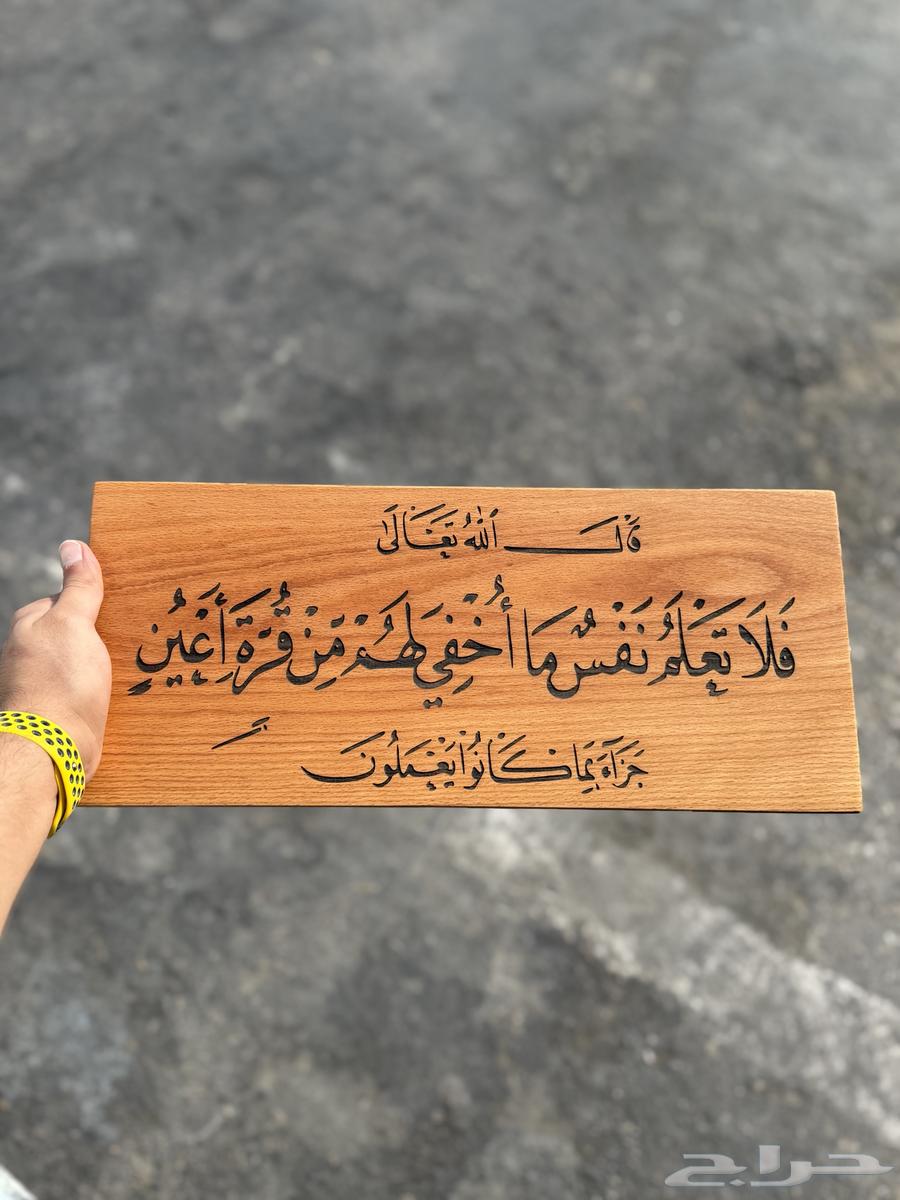 قَالَ ٱللَّهُ تَعَالَىٰ
فَلَا تَعْلَمُ نَفْسٌ مَا أُخْفِيَ لَهُمْ مِنْ قُرَّةِ أَعْيُنٍ
جَزَآءً بِمَا كَانُوا۟ يَعْمَلُونَ
حراج